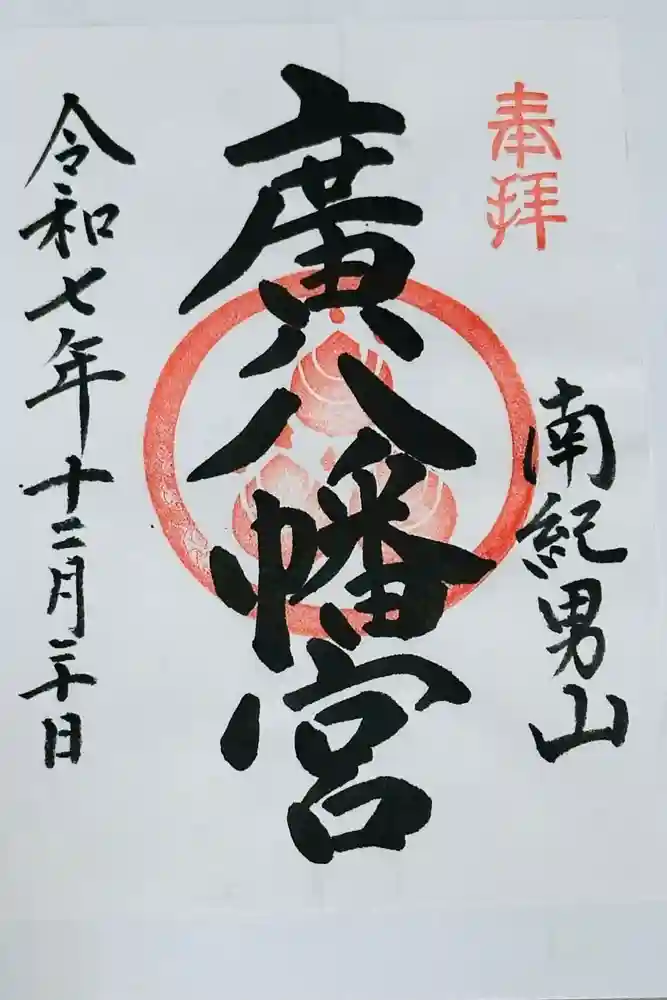 奉拝
南紀男山
廣八幡宮
令和七年十二月二十日